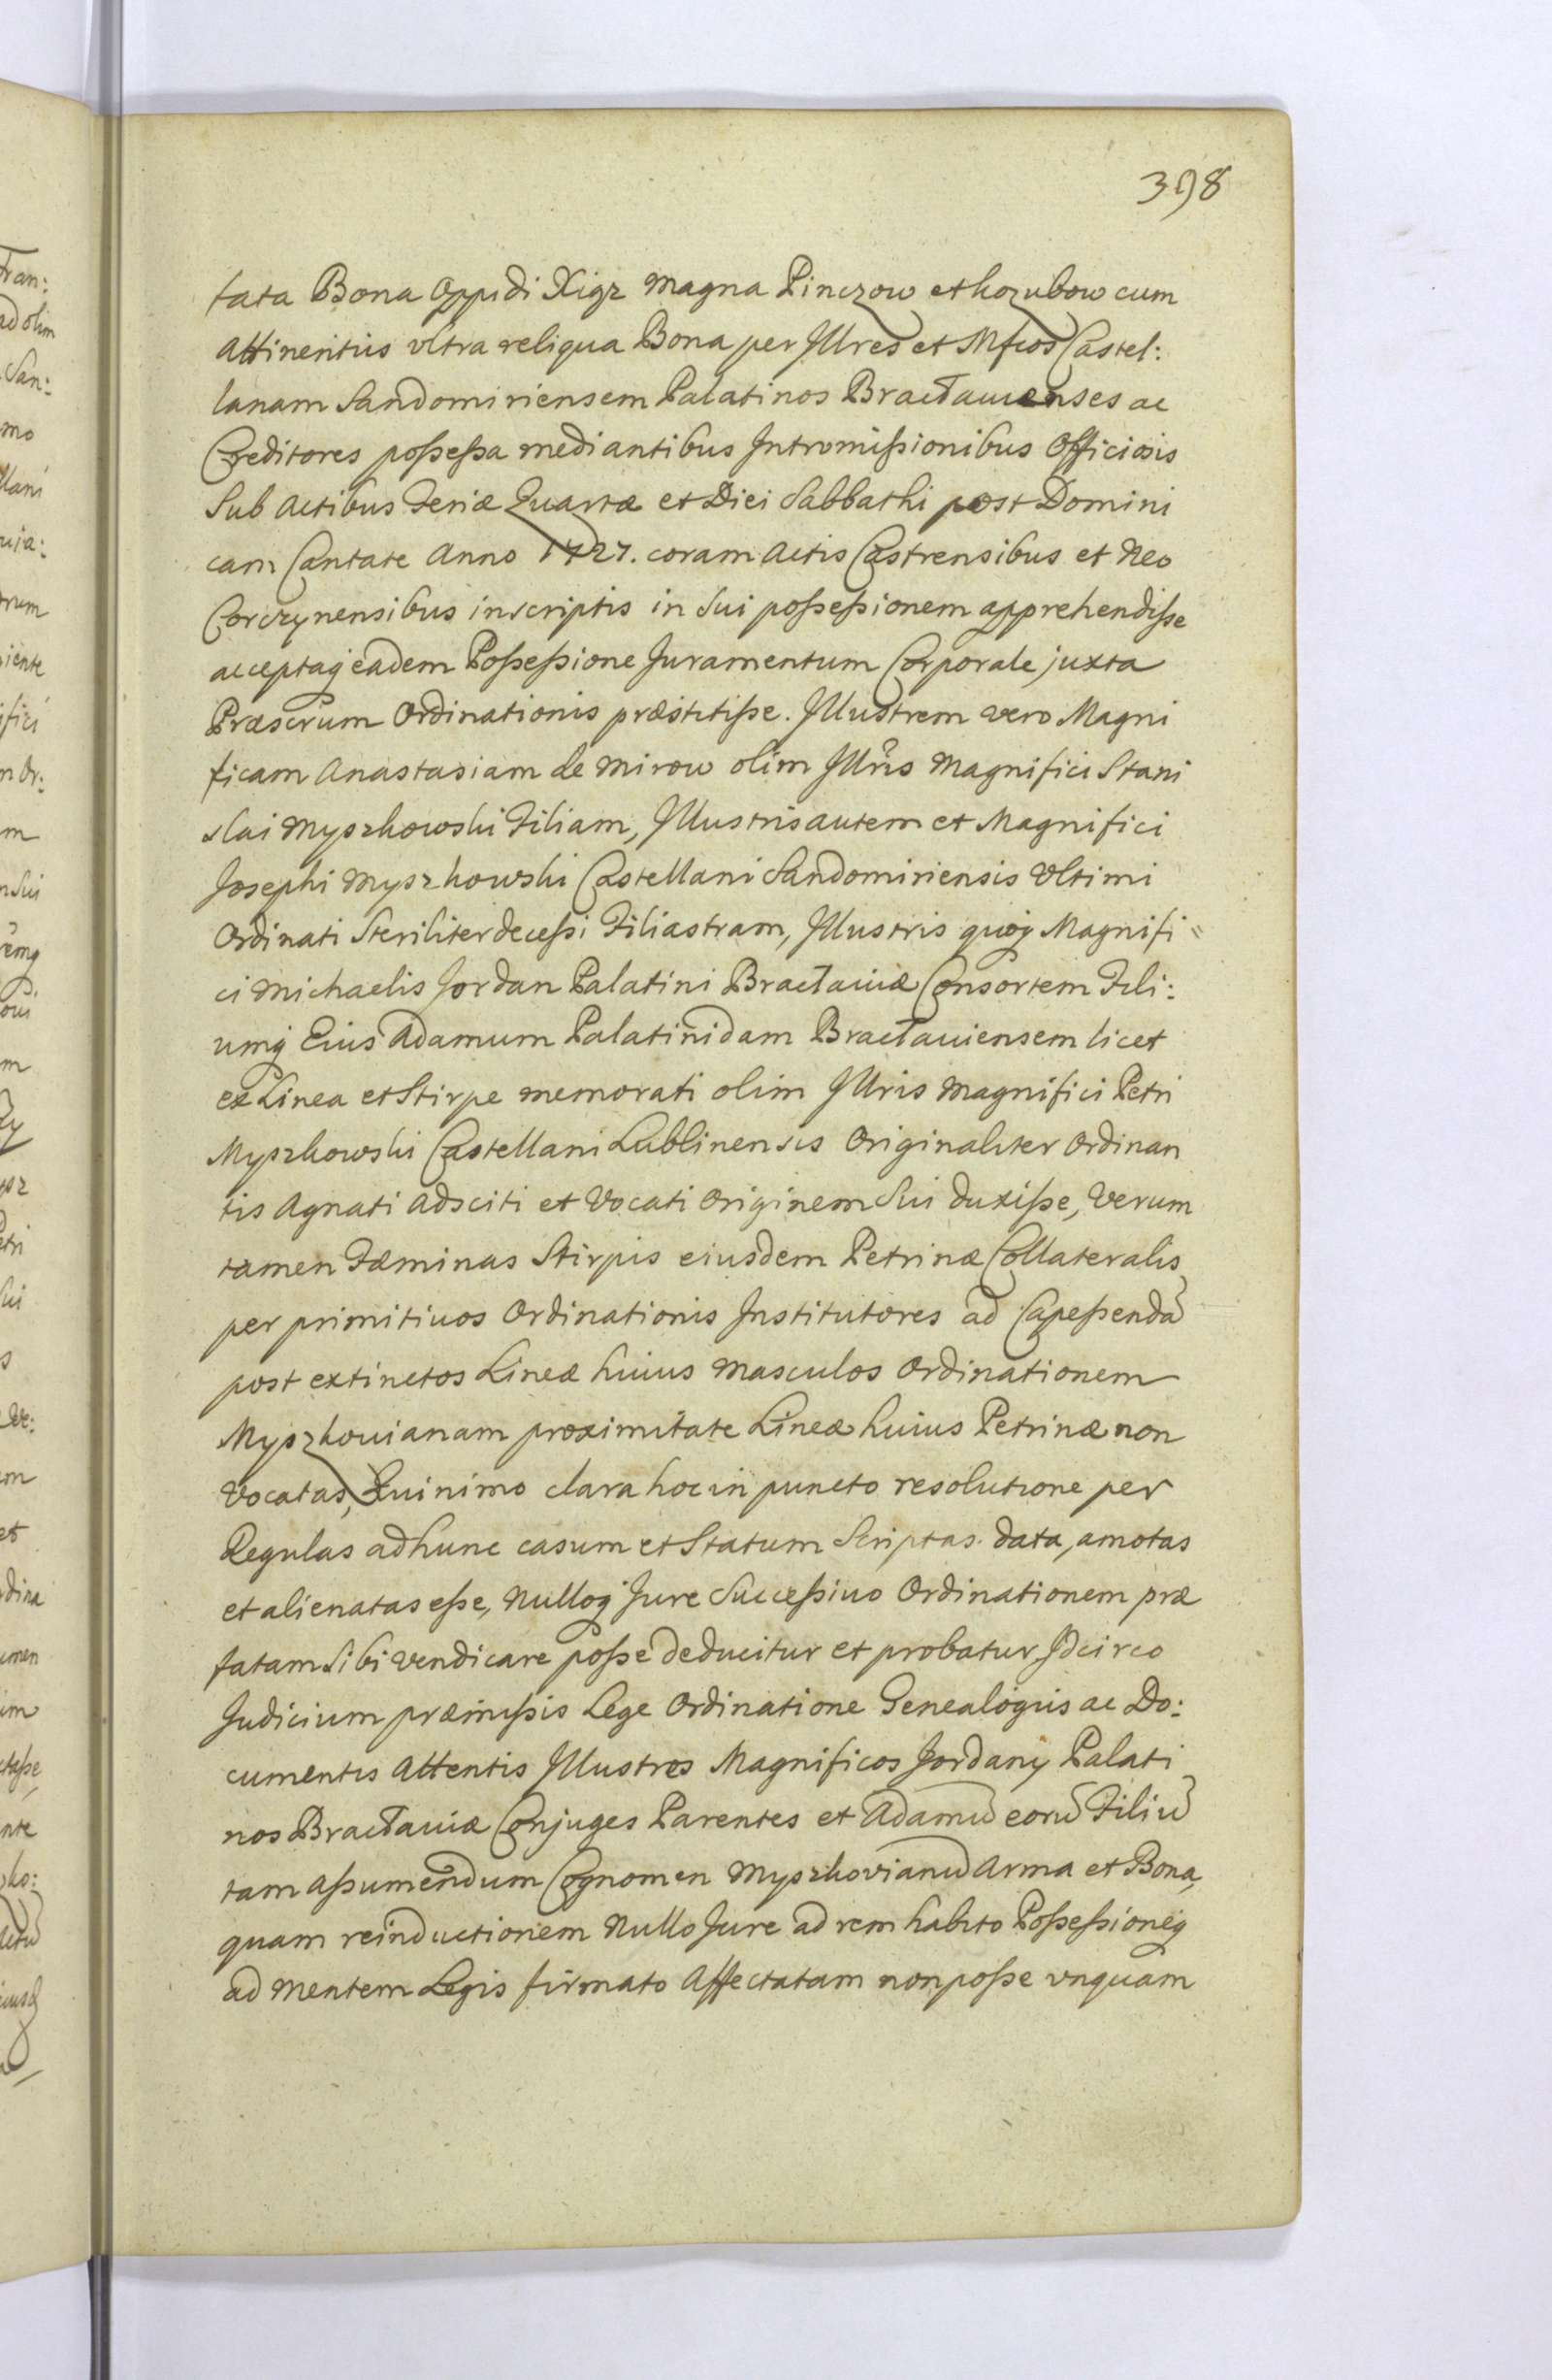 398
tata Bona Oppidi Xigz Magna Pinczow et Kozubow cum
Attinentiis vltra reliqua Bona per Jllres et Mfcos Castel:
lanam Sandomiriensem Palatinos Braclauienses ac
Creditores poſseſsa mediantibus Intromiſsionibus Officiosis
Sub Actibus Feriæ Quartæ et Diei Sabbathi post Domini
cam Cantate Anno 1727. coram Actis Castrensibus et Neo
Corczynensibus inscriptis in Sui poſseſsionem apprehendiſse
acceptaq́ eadem Poſseſsione Juramentum Corporale juxta
Præscrum Ordinationis præstitiſse. Jllustrem vero Magni
ficam Anastasiam de Mirow olim Jllris Magnifici Stani
slai Myszkowski Filiam, Jllustris autem et Magnifici
Josephi Myszkowski Castellani Sandomiriensis Vltimi
Ordinati Steriliter deceſsi Filiastram, Jllustris quoq́ Magnifi
ci Michaelis Jordan Palatini Braclauiæ Consortem Fili:
umq́ Eius Adamum Palatinidam Braclauiensem licet
ex Linea et Stirpe memorati olim Jllris Magnifici Petri
Myszkowski Castellani Lublinensis Originaliter Ordinan
tis Agnati Adsciti et Vocati Originem Sui duxiſse, Verum
tamen Fæminas Stirpis eiusdem Petrinæ Collateralis
per primitiuos Ordinationis Institutores ad Capeſsendã
post extinctos Lineæ huius Masculos Ordinationem
Myszkouianam proximitate Lineæ huius Petrinæ non
Vocatas, Quinimo clara hoc in puncto resolutione per
Regulas ad hunc casum et Statum Scriptas data, amotas
et alienatas eſse, Nulloq́ Jure Succeſsiuo Ordinationem præ
fatam Sibi vendicare poſse deducitur et probatur, Jdcirco
Judicium præmiſsis Lege Ordinatione Genealogiis ac Do:
cumentis Attentis Jllustres Magnificos Jordany Palati
nos Braclauiæ Conjuges Parentes et Adamũ eorũ Filiũ
tam aſsumendum Cognomen Myszkovianũ Arma et Bona,
quam reinductionem Nullo Jure ad rem habito Poſseſsioneq́
ad Mentem Legis firmato Affectatam non poſse vnquam